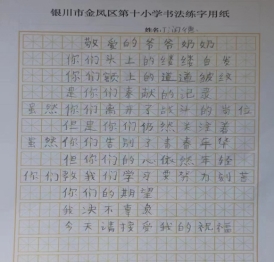 银川市金凤区第十小学书法练字用纸
姓名:丁
敬爱的爷爷奶奶
你们头上的缕缕白发
你们额上的道道皱纹
是你们奉献的记录
虽然你们离开了战斗的单位
但是你们仍然关注着
虽然你们告别了青春年华
但你们的心依然年轻
你们教我们学习要努力刻苦
你们的期望
我决不辜负
今天请接受我的祝福